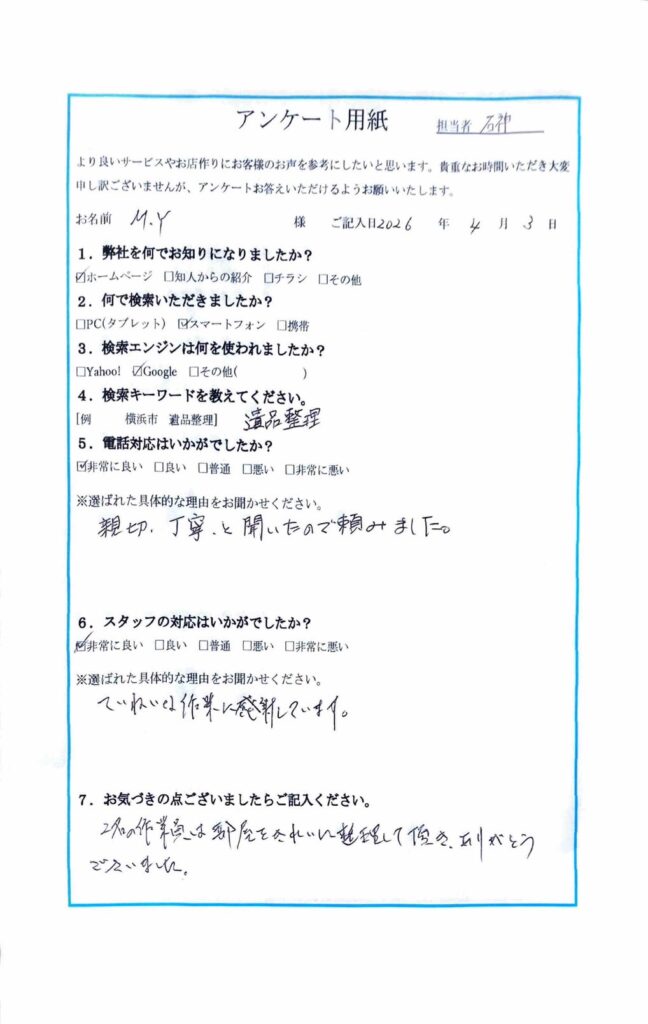 アンケート用紙
担当者 石神
より良いサービスやお店作りにお客様のお声を参考にしたいと思います。貴重なお時間いただき大変
申し訳ございませんが、アンケートお答えいただけるようお願いいたします。
お名前 M.Y 様 ご記入日2026 年 4 月 3 日
1．弊社を何でお知りになりましたか？
☑ホームページ □知人からの紹介 □チラシ □その他
2．何で検索いただきましたか？
□PC(タブレット) ☑スマートフォン □携帯
3．検索エンジンは何を使われましたか？
□Yahoo! ☑Google □その他( )
4．検索キーワードを教えてください。
[例 横浜市 遺品整理] 遺品整理
5．電話対応はいかがでしたか？
☑非常に良い □良い □普通 □悪い □非常に悪い
※選ばれた具体的な理由をお聞かせください。
親切、丁寧、と聞いたので頼みました。
6．スタッフの対応はいかがでしたか？
☑非常に良い □良い □普通 □悪い □非常に悪い
※選ばれた具体的な理由をお聞かせください。
ていねいな作業に感謝しています。
7．お気づきの点ございましたらご記入ください。
2名の作業員は部屋をきれいに整理して頂き、ありがとう
ございました。